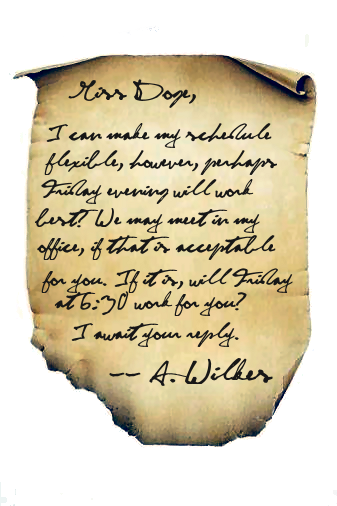 Miss Doge,
I can make my schedule
flexible, however, perhaps
Friday evening will work
best? We may meet in my
office, if that is acceptable
for you. If it is, will Friday
at 6:30 work for you?
I await your reply.
-- A. Wilkes